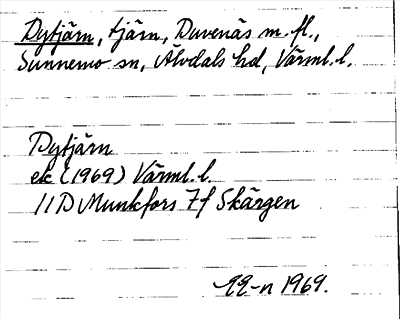 Dytjärn, tjärn, Duvenäs m. fl.,
Sunnemo sn, Älvdals hd, Värml. l.
Dytjärn
ek (1969) Värml. l.
11D Munkfors 7f Skärgen
1969.